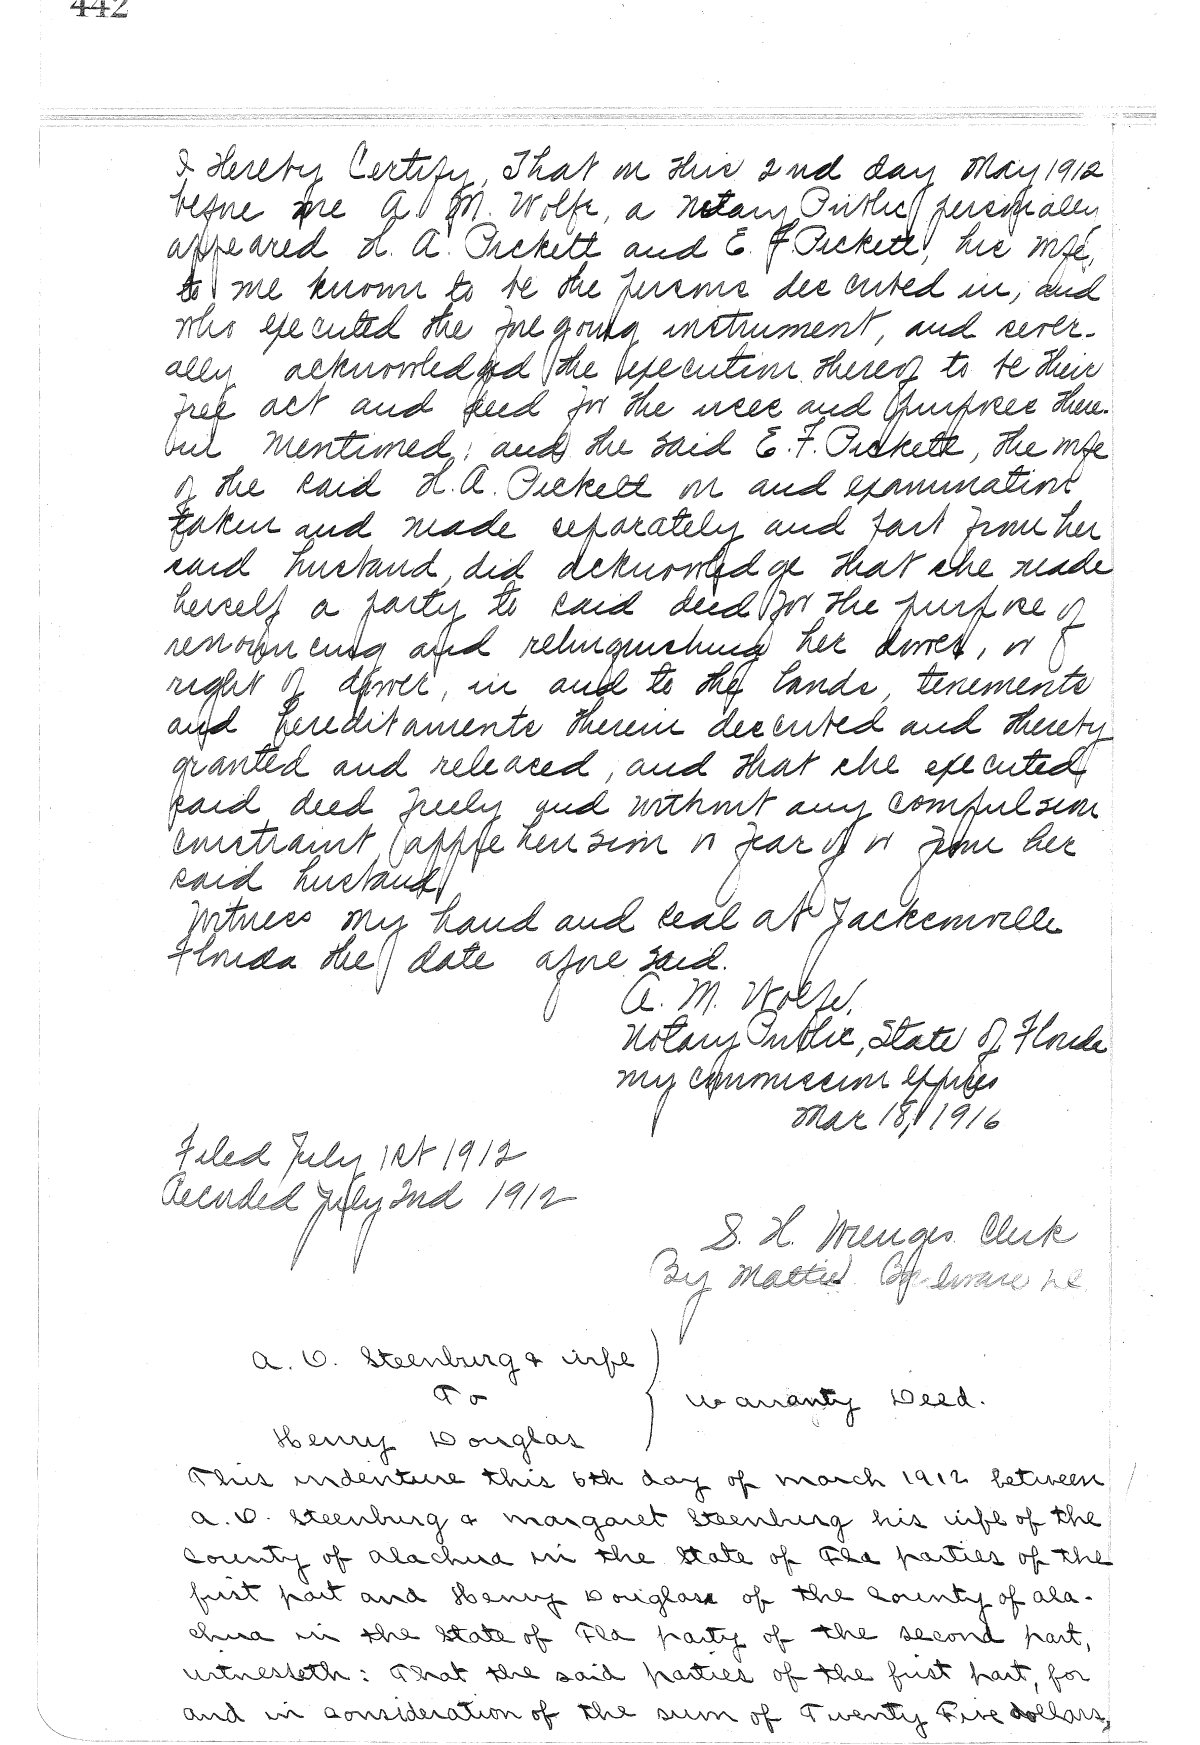 442
I Hereby Certify, That on this 2nd day May 1912
before me A. M. Wolfe, a Notary Public personally
appeared H. A. Pickett and E. F. Pickett, his wife,
to me known to be the persons described in, and
who executed the foregoing instrument, and sever-
ally acknowledged the execution thereof to be their
free act and deed for the uses and purposes there-
in mentioned; and the said E. F. Pickett, the wife
of the said H. A. Pickett on and examination
taken and made separately and part from her
said husband, did acknowledge that she made
herself a party to said deed for the purpose of
renouncing and relinquishing her dower, or
right of dower, in and to the lands, tenements
and hereditaments therein described and thereby
granted and released, and that she executed
said deed freely and without any compulsion
constraint apprehension or fear of or from her
said husband.
Witness my hand and seal at Jacksonville
Florida the date afore said.
A. M. Wolfe,
Notary Public, State of Florida
My commission expires
Mar 18, 1916
Filed July 1st 1912
Recorded July 2nd 1912
S. H. Wienges Clerk
By Mattie DC
A. O. Steenburg & wife
To
Warranty Deed.
Henry Douglas
This indenture this 6th day of March 1912 between
A. O. Steenburg & Margaret Steenburg his wife of the
County of Alachua in the State of Fla parties of the
first part and Henry Douglass of the County of Ala-
chua in the State of Fla party of the second part,
witnesseth: That the said parties of the first part, for
and in consideration of the sum of Twenty Five dollars,